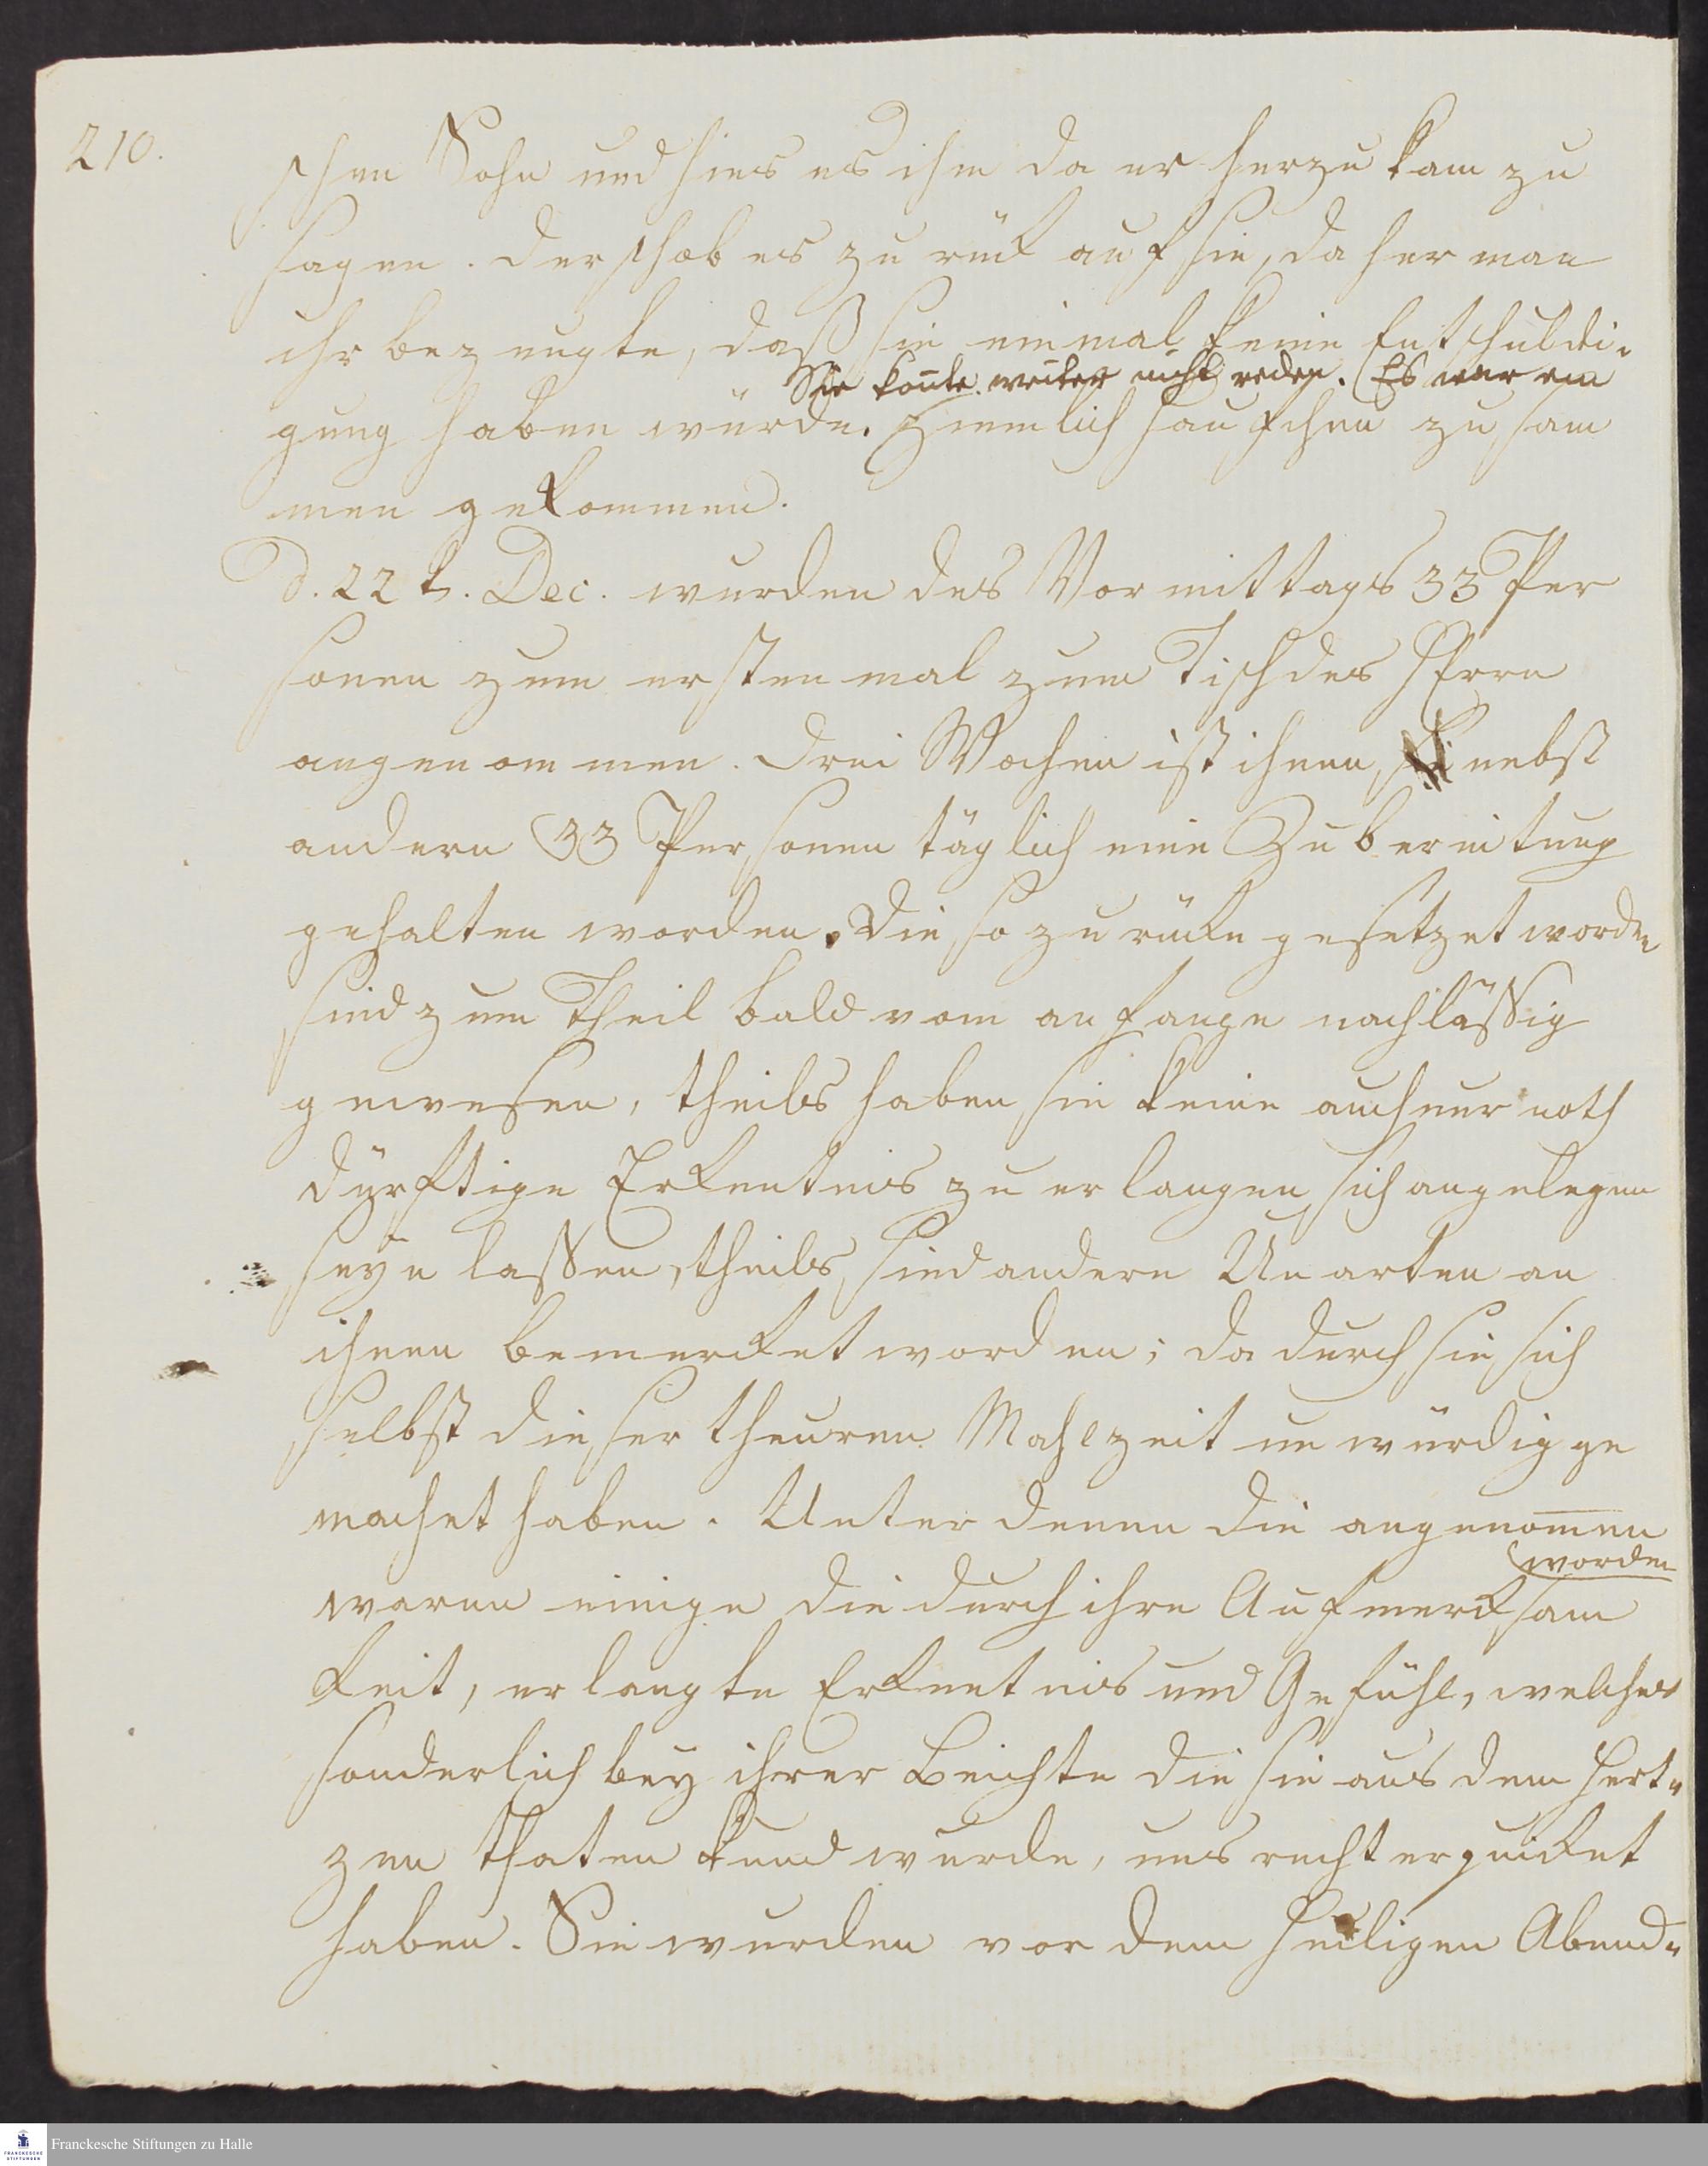 210.
schen Sohn und hies es ihm da er herzu kam zu
sagen. Der schob es zurük auf sie, daher man
ihr bezeugte, daß sie einmal keine Entschuldi-
Sie konte weiter nicht reden. Es war ein
gung haben würde. ziemlich Häufchen zusam
men gekommen.
D. 22t. Dec. wurden des Vormittags 33 Per
sonen zum ersten mal zum Tisch des HErrn
angenommen. Drei Wochen ist ihnen, nebst
andern 33 Personen täglich eine Zubereitung
gehalten worden. Die so zurüke gesetzet worden
sind zum Theil bald vom anfange nachläßig
gewesen, theils haben sie keine auch nur noth
dürftige Erkentnis zu erlangen sich angelegen
seyn laßen, theils sind andere Unarten an
ihnen bemerket worden; dadurch sie sich
selbst dieser theuren Mahlzeit unwürdig ge
machet haben. Unter denen die angenom̄en
worden
waren einige die durch ihre Aufmerksam
keit, erlangte Erkentnis und Gefühl, welches
sonderlich bey ihrer Beichte die sie aus dem Hert-
zen thaten kund wurde, uns recht erquicket
haben. Sie wurden vor dem heiligen Abend-
Franckesche Stiftungen zu Halle
FRANCKESCHE
STIFTUNGEN